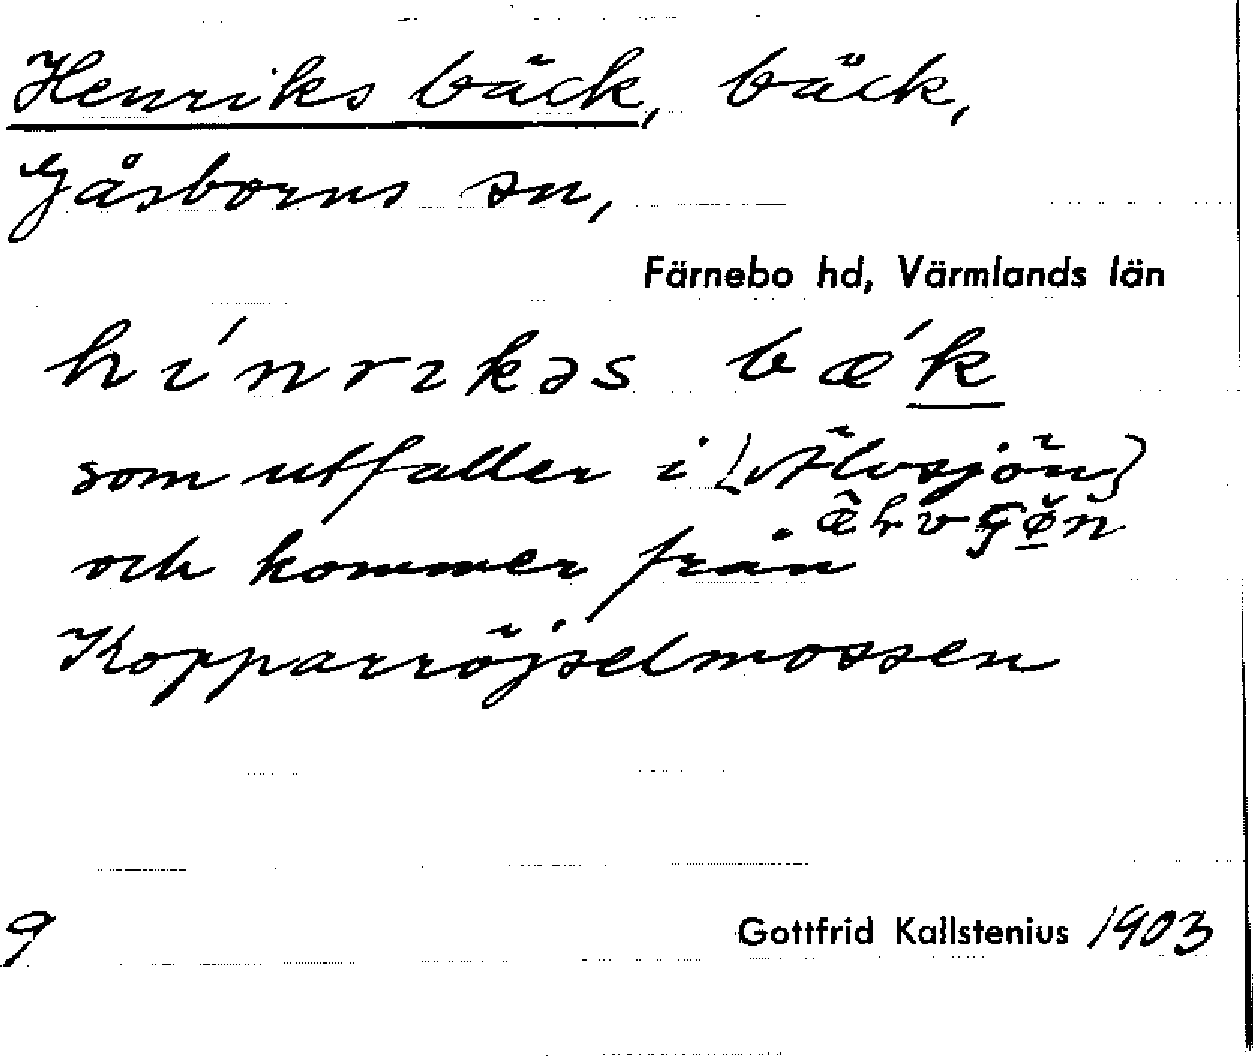 Henriks bäck, bäck,
Gåsborns sn,
Färnebo hd, Värmlands län
hínrikəs bǽk
som utfaller i [Älvsjön]
och kommer från
Kopparröjselmossen
9
Gottfrid Kallstenius 1903